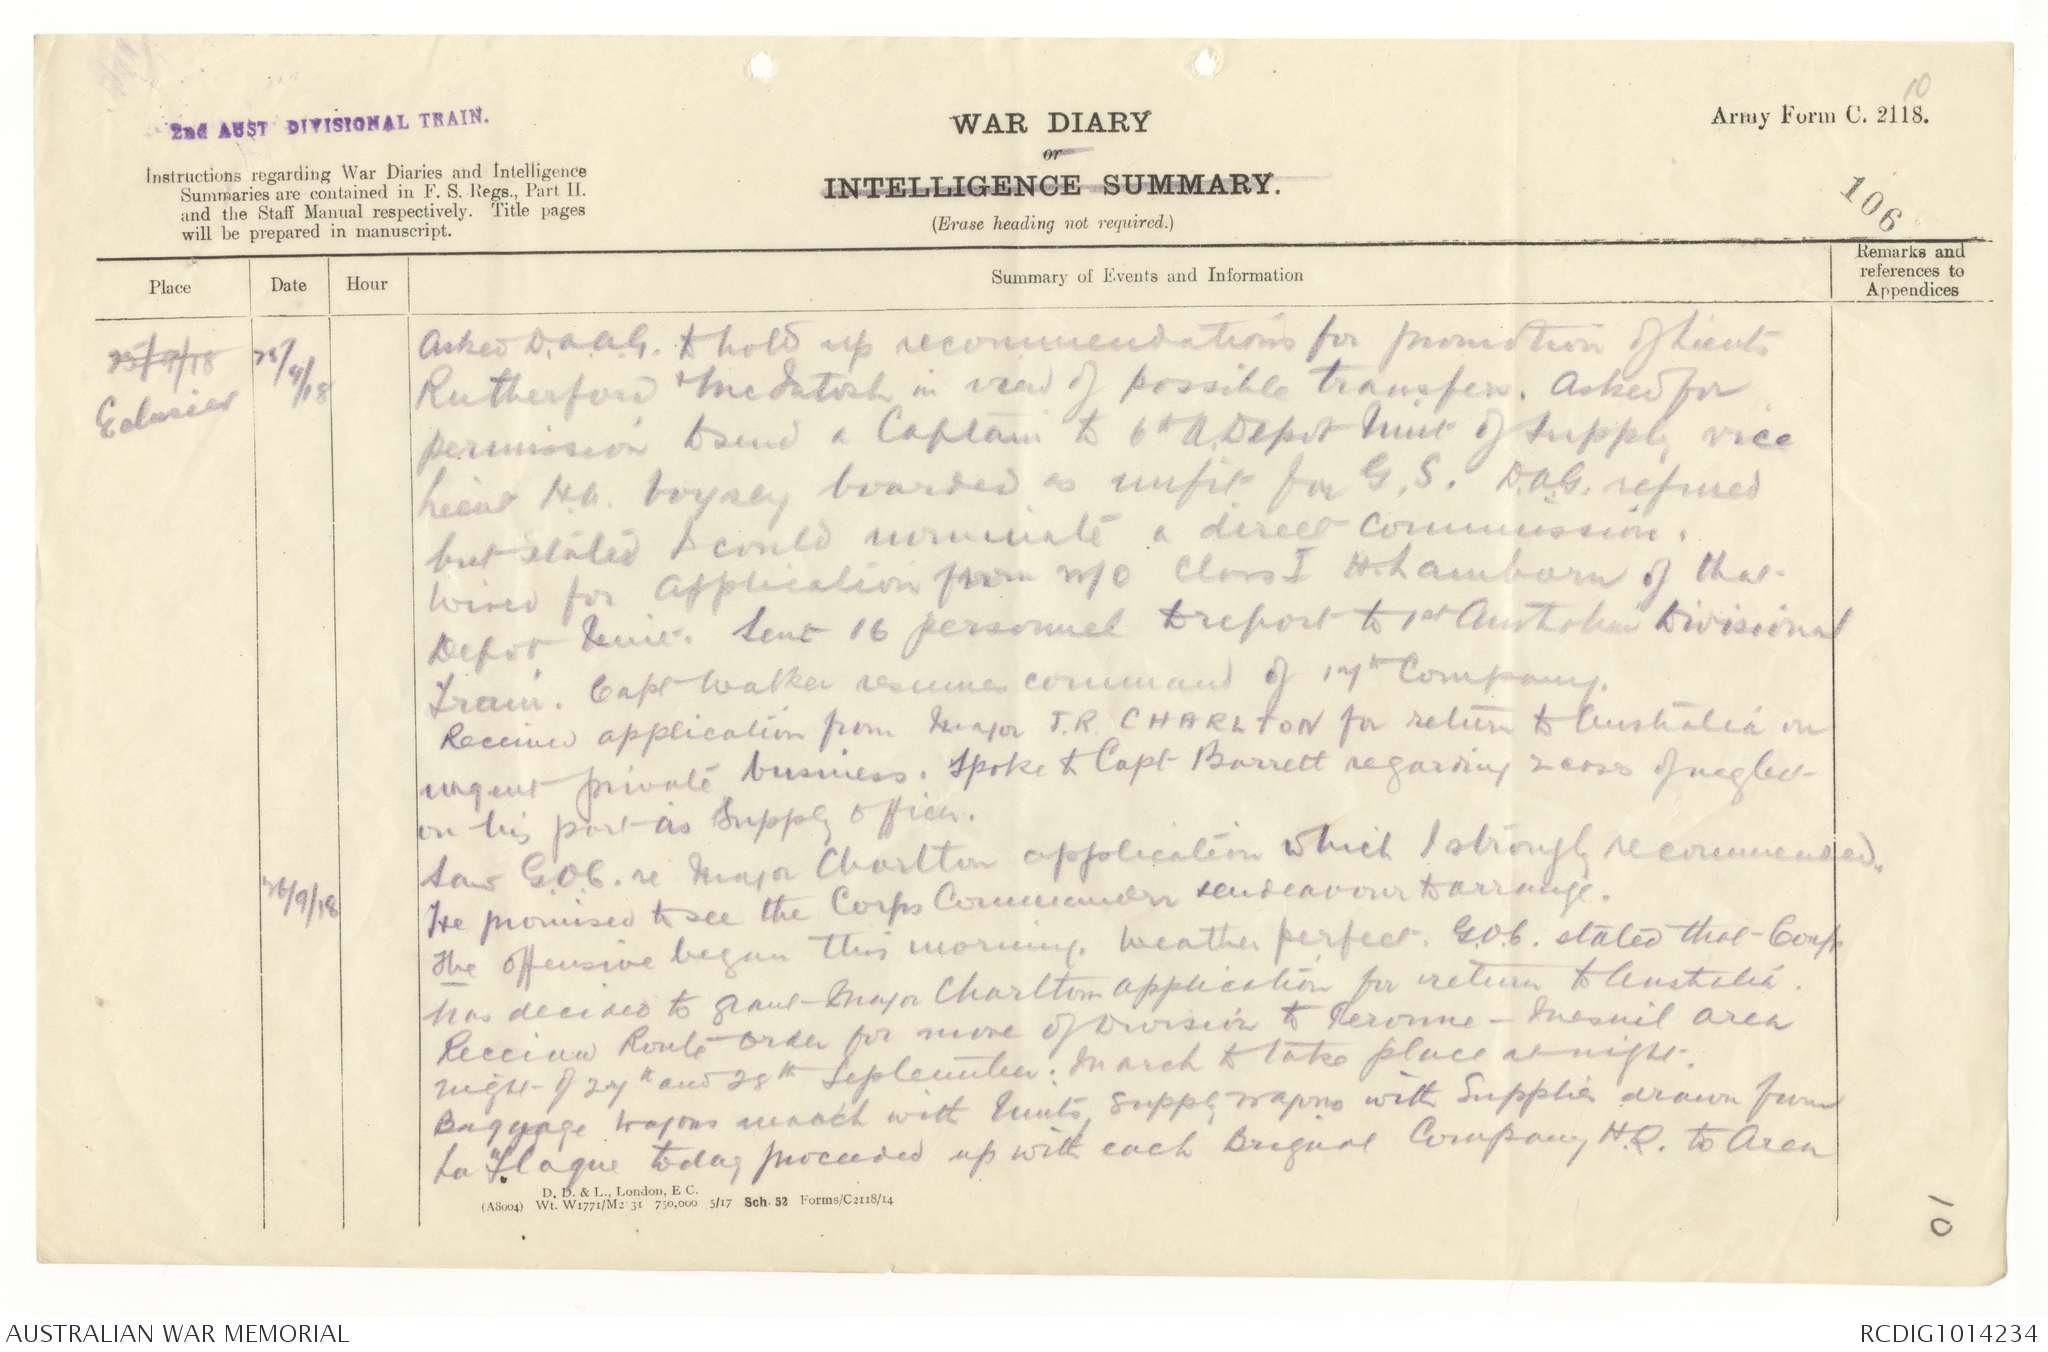 10
2nd AUST DIVISIONAL TRAIN.
WAR DIARY
or
INTELLIGENCE SUMMARY.
(Erase heading not required.)
Army Form C. 2118.
106
Instructions regarding War Diaries and Intelligence
Summaries are contained in F. S. Regs., Part II.
and the Staff Manual respectively. Title pages
will be prepared in manuscript.
Place
Date
Hour
Summary of Events and Information
Remarks and
references to
Appendices
25/9/18
Eclusier
25/9/18
Asked D.A.A.G. to hold up recommendations for promotion of Lieuts
Rutherford & McIntosh in view of possible transfers. Asked for
permission to send a Captain to 6th A. Depot Unit of Supply vice
Lieut H.A. boarded as unfit for G.S. D.A.G. refused
but stated I could nominate a direct commission.
Wired for application from W/O Class I H. Lamborn of that
Depot Unit. Sent 16 personnel to report to 1st Australian Divisional
Train. Capt Walker resumes command of 17th Company.
Received application from Major J.R. CHARLTON for return to Australia on
urgent private business. Spoke to Capt Barrett regarding 2 cases of neglect
on his part as Supply Officer.
26/9/18
Saw G.O.C. re Major Charlton application which I strongly recommended.
He promised to see the Corps Commander & endeavour to arrange.
The offensive began this morning. Weather perfect. G.O.C. stated that Corps
has decided to grant Major Charlton application for return to Australia.
Received Route order for move of Division to Peronne - Mesnil area
night of 27th and 28th September. March to take place at night.
Baggage wagons march with Units, Supply wagons with Supplies drawn from
La Flaque today proceeded up with each Brigade Company H.Q. to Area
D. D. & L., London, E C.
(A8004) Wt. W1771/M2 31 750,000 5/17 Sch. 52 Forms/C2118/14
10
AUSTRALIAN WAR MEMORIAL
RCDIG1014234